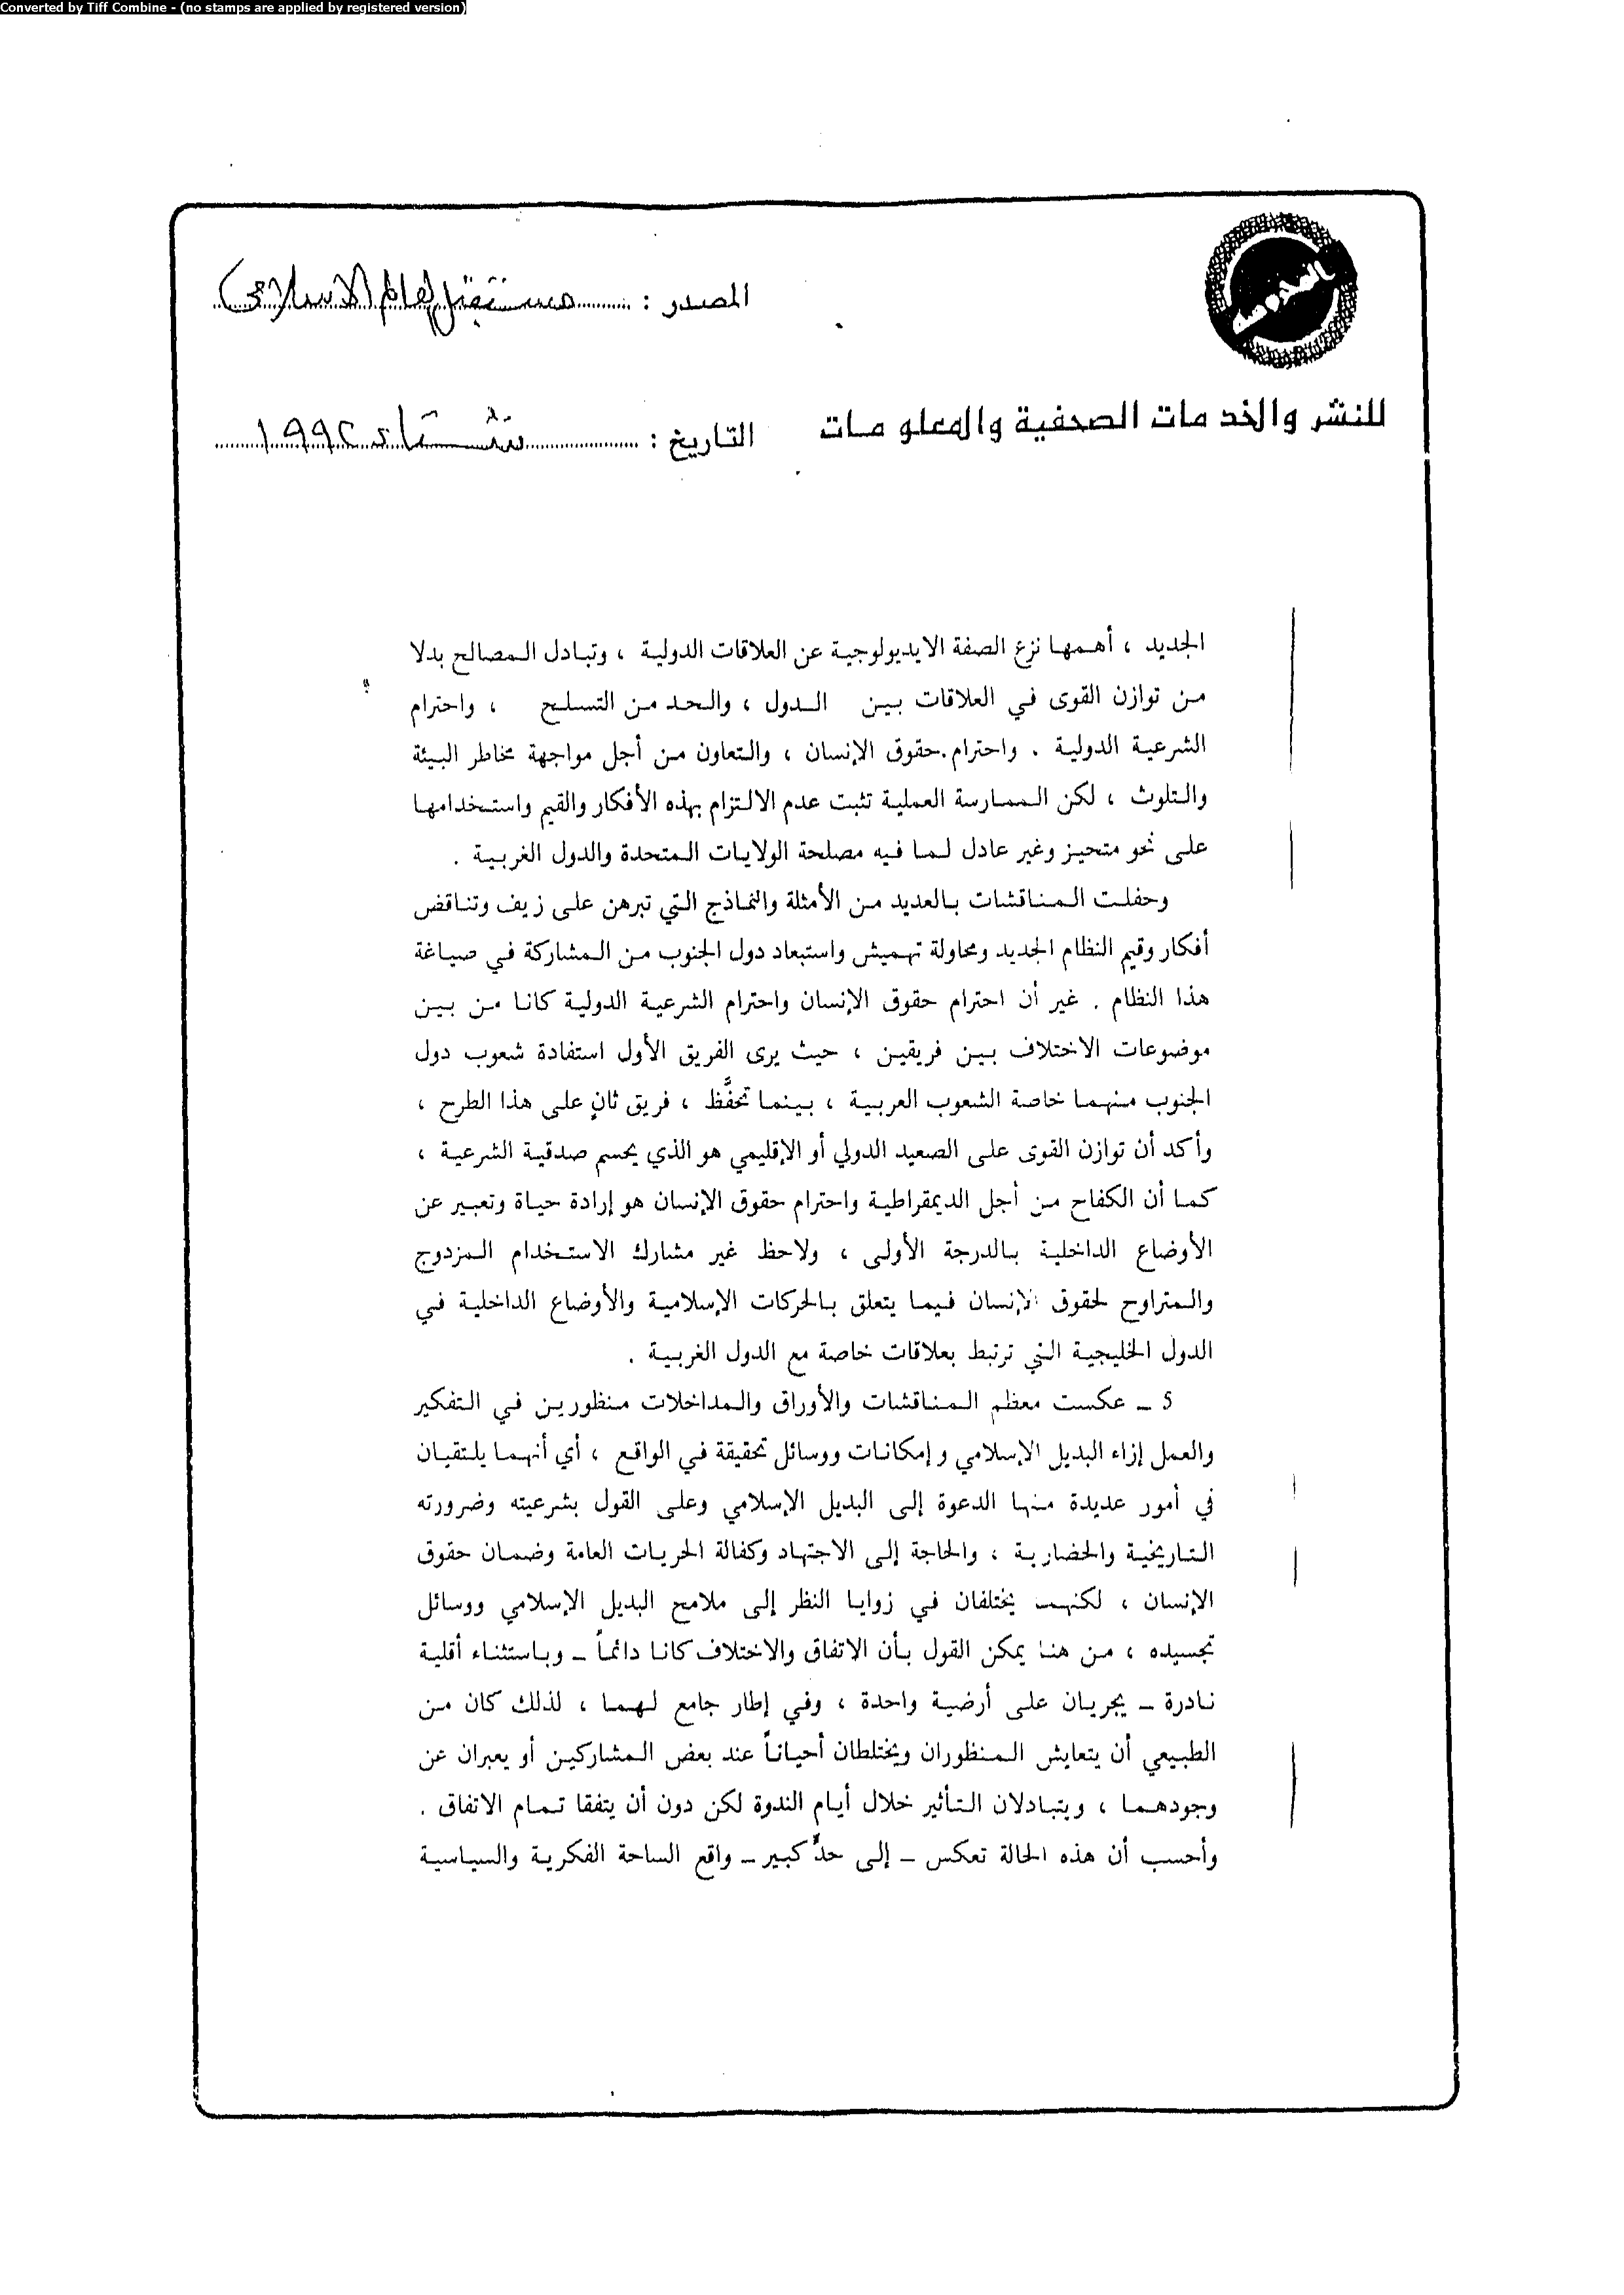 Converted by Tiff Combine - (no stamps are applied by registered version)
المصدر : مستقبل العالم الاسلامي
للنشر والخدمات الصحفية والمعلومات
التاريخ : شتاء ١٩٩٢
الجديد ، أهمها نزع الصفة الايديولوجية عن العلاقات الدولية ، وتبادل المصالح بدلا
من توازن القوى في العلاقات بين الدول ، والحد من التسلح ، واحترام
الشرعية الدولية . واحترام حقوق الإنسان ، والتعاون من أجل مواجهة مخاطر البيئة
والتلوث ، لكن الممارسة العملية تثبت عدم الالتزام بهذه الأفكار والقيم واستخدامها
على نحو متحيز وغير عادل لما فيه مصلحة الولايات المتحدة والدول الغربية .
وحفلت المناقشات بالعديد من الأمثلة والنماذج التي تبرهن على زيف وتناقض
أفكار وقيم النظام الجديد ومحاولة تهميش واستبعاد دول الجنوب من المشاركة في صياغة
هذا النظام . غير أن احترام حقوق الإنسان واحترام الشرعية الدولية كانا من بين
موضوعات الاختلاف بين فريقين ، حيث يرى الفريق الأول استفادة شعوب دول
الجنوب منهما خاصة الشعوب العربية ، بينما تحفَّظ ، فريق ثانٍ على هذا الطرح ،
وأكد أن توازن القوى على الصعيد الدولي أو الإقليمي هو الذي يحسم صدقية الشرعية ،
كما أن الكفاح من أجل الديمقراطية واحترام حقوق الإنسان هو إرادة حياة وتعبير عن
الأوضاع الداخلية بالدرجة الأولى ، ولاحظ غير مشارك الاستخدام المزدوج
والمتراوح لحقوق الإنسان فيما يتعلق بالحركات الإسلامية والأوضاع الداخلية في
الدول الخليجية التي ترتبط بعلاقات خاصة مع الدول الغربية .
5 ـ عكست معظم المناقشات والأوراق والمداخلات منظورين في التفكير
والعمل إزاء البديل الإسلامي وإمكانات ووسائل تحقيقة في الواقع ، أي أنهما يلتقيان
في أمور عديدة منها الدعوة إلى البديل الإسلامي وعلى القول بشرعيته وضرورته
التاريخية والحضارية ، والحاجة إلى الاجتهاد وكفالة الحريات العامة وضمان حقوق
الإنسان ، لكنهما يختلفان في زوايا النظر إلى ملامح البديل الإسلامي ووسائل
تجسيده ، من هنا يمكن القول بأن الاتفاق والاختلاف كانا دائماً ـ وباستثناء أقلية
نادرة ـ يجريان على أرضية واحدة ، وفي إطار جامع لهما ، لذلك كان من
الطبيعي أن يتعايش المنظوران ويختلطان أحياناً عند بعض المشاركين أو يعبران عن
وجودهما ، ويتبادلان التأثير خلال أيام الندوة لكن دون أن يتفقا تمام الاتفاق .
وأحسب أن هذه الحالة تعكس ـ إلى حدٍّ كبير ـ واقع الساحة الفكرية والسياسية